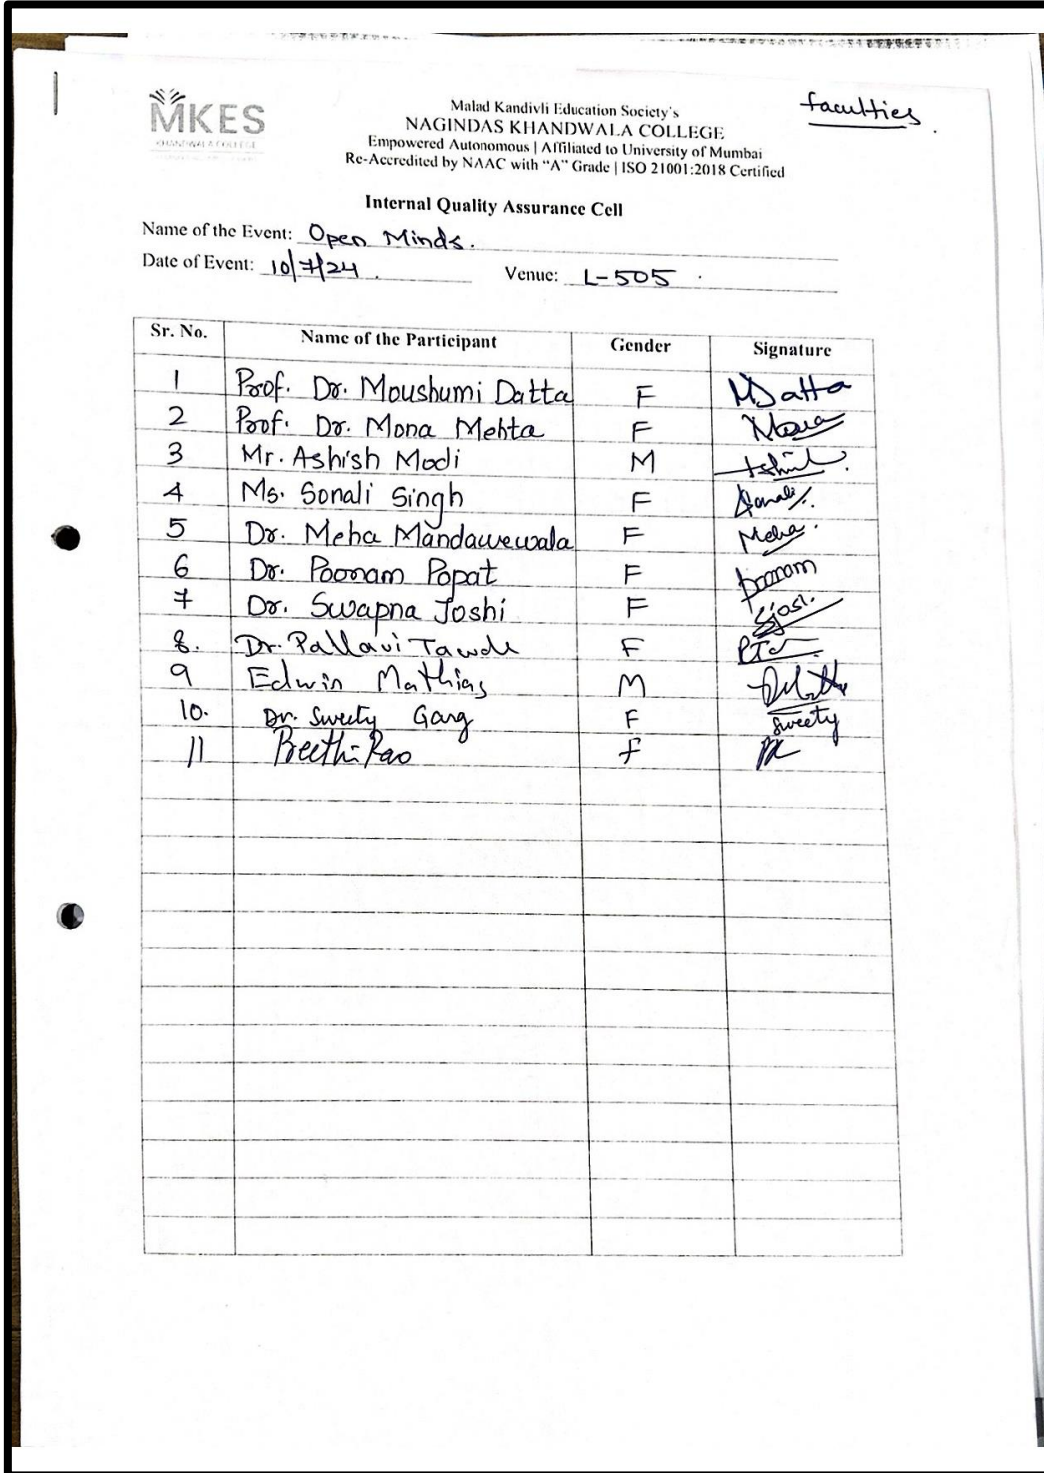 faculties.
MKES
KHANDWALA COLLEGE
Malad Kandivli Education Society's
NAGINDAS KHANDWALA COLLEGE
Empowered Autonomous | Affiliated to University of Mumbai
Re-Accredited by NAAC with “A” Grade | ISO 21001:2018 Certified
Internal Quality Assurance Cell
Name of the Event: Open Minds.
Date of Event: 10/7/24. Venue: L-505.
Sr. No. Name of the Participant Gender Signature
1 Prof. Dr. Moushumi Datta F MDatta
2 Prof. Dr. Mona Mehta F Mona
3 Mr. Ashish Modi M
4 Ms. Sonali Singh F Sonali
5 Dr. Meha Mandawewala F Meha
6 Dr. Poonam Popat F poonam
7 Dr. Swapna Joshi F
8. Dr. Pallavi Tawde F
9 Edwin Mathias M
10. Dr. Sweety Garg F Sweety
11 Preethi Rao f